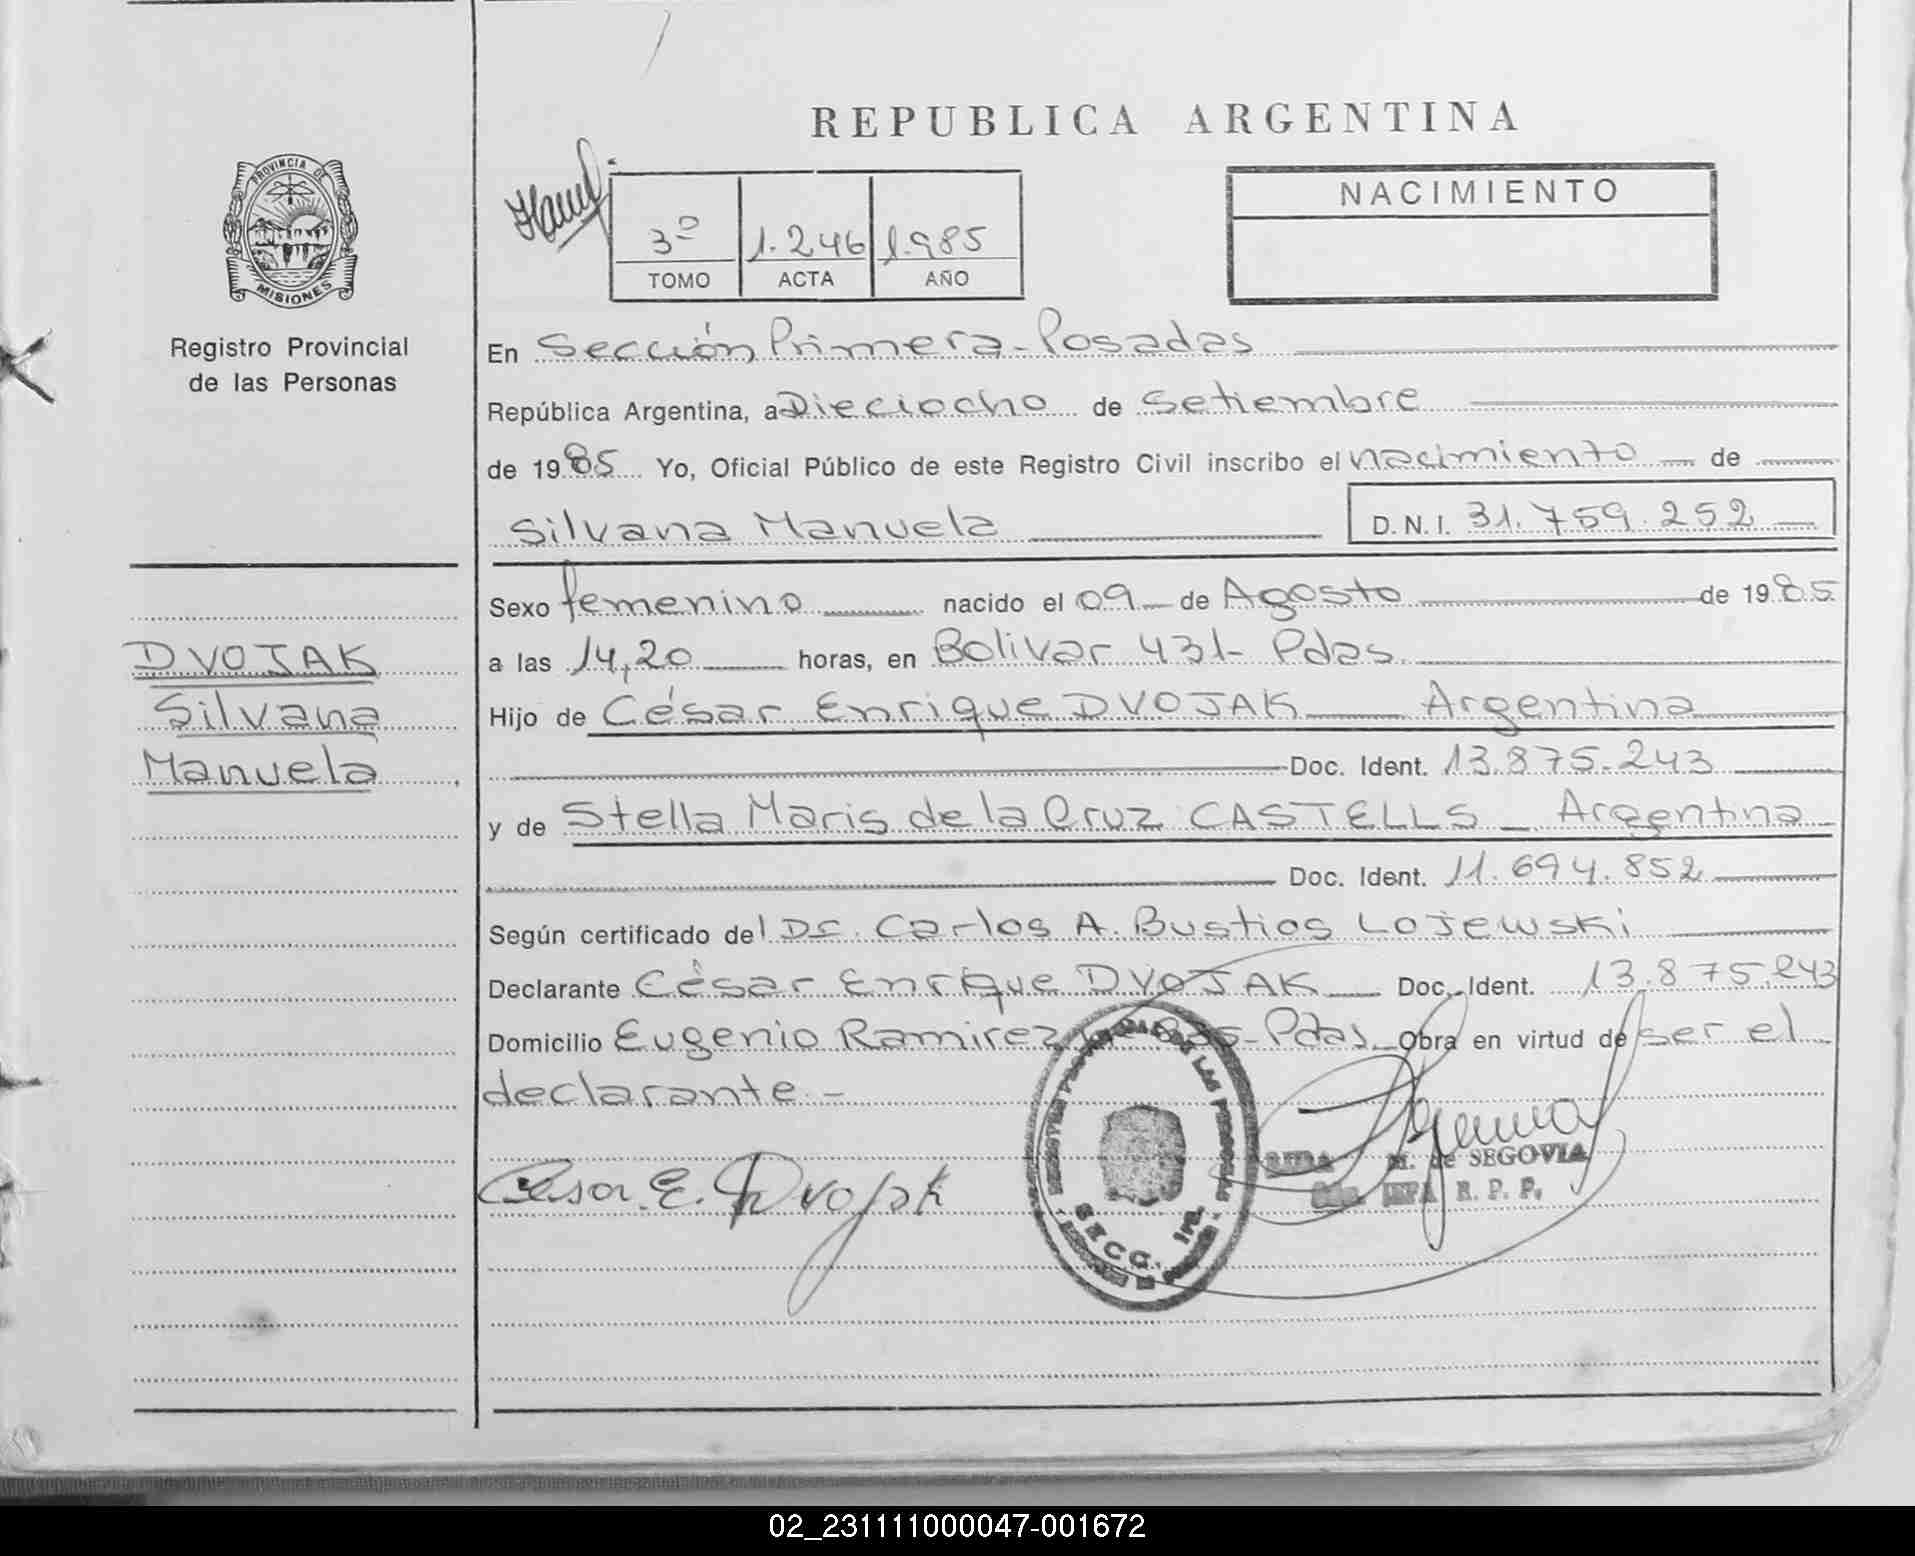 REPUBLICA ARGENTINA
PROVINCIA DE
MISIONES
Registro Provincial
de las Personas
3º 1.246 1.985
TOMO ACTA AÑO
NACIMIENTO
En Sección Primera-Posadas
República Argentina, a Dieciocho de Setiembre
de 1985 Yo, Oficial Público de este Registro Civil inscribo el nacimiento de
Silvana Manuela D.N.I. 31.759.252
DVOJAK
Silvana
Manuela
Sexo femenino nacido el 09 de Agosto de 1985
a las 14,20 horas, en Bolivar 431- Pdas.
Hijo de César Enrique DVOJAK Argentina
Doc. Ident. 13.875.243
y de Stella Maris de la Cruz CASTELLS - Argentina
Doc. Ident. 11.694.852
Según certificado del Dr. Carlos A. Bustios Lojewski
Declarante César Enrique DVOJAK Doc. Ident. 13.875.243
Domicilio Eugenio Ramirez Pdas. Obra en virtud de ser el
declarante.-
Cesar E. Dvojak
SECC. 1ra.
M. de SEGOVIA
R. P. P.
02_231111000047-001672